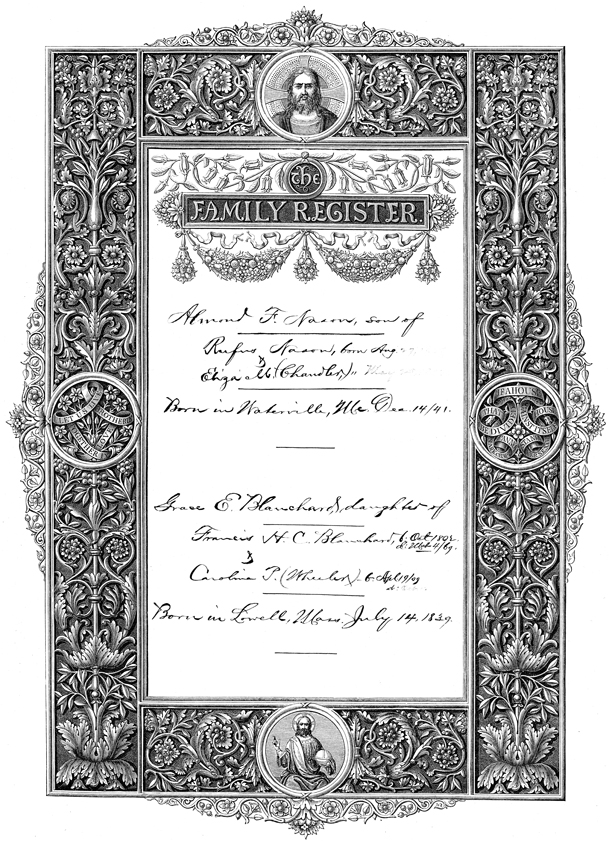 the
FAMILY REGISTER.
Almond F. Nason, son of
Rufus Nason, born Aug.
&
Eliza M. (Chandler) "
Born in Waterville, Me. Dec. 14/41.
Grace E. Blanchard, daughter of
Francis H. C. Blanchard, b. Oct 1802
d. 4/69.
&
Caroline P. (Wheeler) b. Sept 19/09
Born in Lowell, Mass. July 14, 1839.